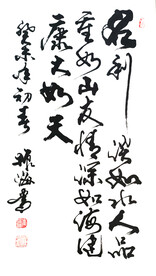 名利淡如水人品
重如山友情深如海健
康大如天
癸未年初春
海书